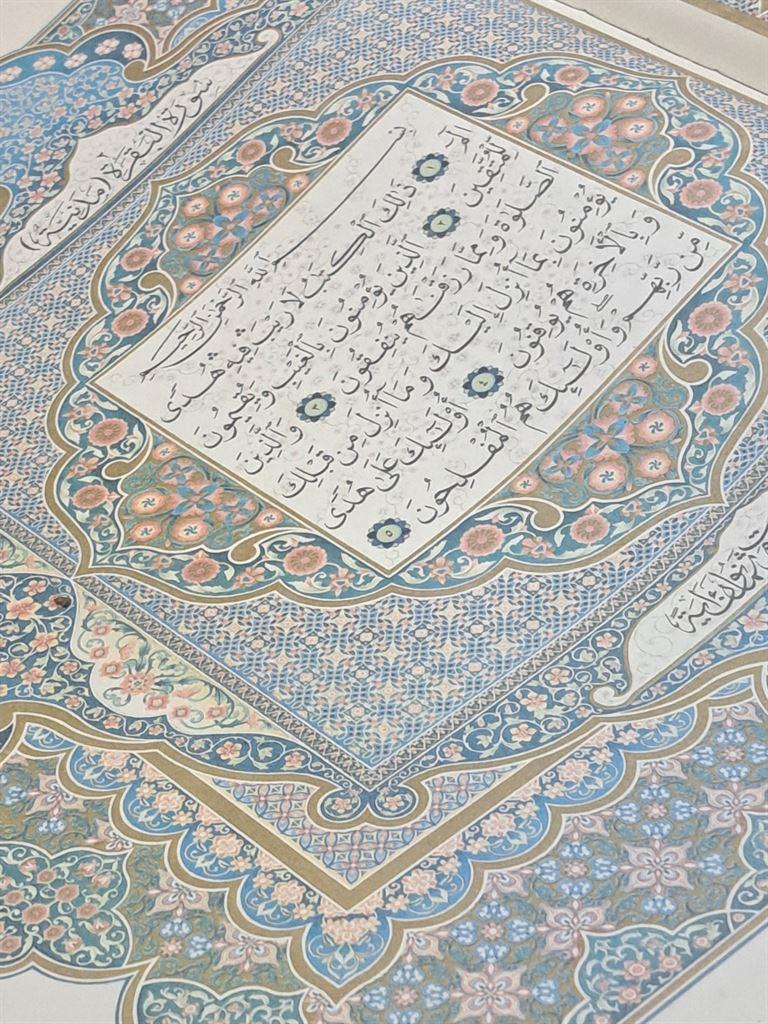 سُورَةُ الْبَقَرَةِ (مَدَنِيَّة)
بِسْمِ اللَّهِ الرَّحْمَنِ الرَّحِيمِ
الٓمٓ ١ ذَٰلِكَ الْكِتَٰبُ لَا رَيْبَ فِيهِ هُدًى
لِلْمُتَّقِينَ ٢ الَّذِينَ يُؤْمِنُونَ بِالْغَيْبِ وَيُقِيمُونَ
الصَّلَوٰةَ وَمِمَّا رَزَقْنَٰهُمْ يُنْفِقُونَ ٣ وَالَّذِينَ
يُؤْمِنُونَ بِمَا أُنْزِلَ إِلَيْكَ وَمَا أُنْزِلَ مِنْ قَبْلِكَ
وَبِالْآخِرَةِ هُمْ يُوقِنُونَ ٤ أُولَٰئِكَ عَلَىٰ هُدًى
مِنْ رَبِّهِمْ وَأُولَٰئِكَ هُمُ الْمُفْلِحُونَ ٥
آيَة